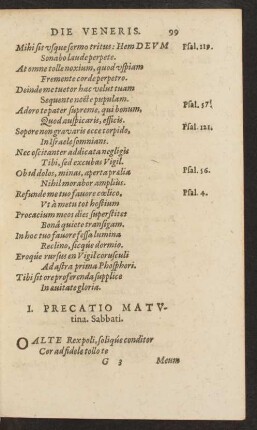 DIE VENERIS. 99
Mihi sit vsque sermo tritus: Hem DEVM Psal. 119.
Sonabo laude perpete.
At omne tolle noxium, quod vspiam
Fremente corde perpetro.
Deinde me tuetor hac velut tuam
Sequente nocte pupulam.
Adoro te pater supreme, qui bonum, Psal. 57.
Quod suspicaris, efficis.
Sopore non grauaris ecce torpido, Psal. 121.
In Israele somnians.
Nec oscitanter addicata negligis
Tibi, sed excubas Vigil.
Ob id dolos, minas, aperta prælia Psal. 56.
Nihil morabor amplius.
Refundo me tuo fauore cælica, Psal. 4.
Vt à metu tot hostium
Procacium meos dies superstites
Bonâ quiete transigam.
In hoc tuo fauore fessa lumina
Reclino, sicque dormio.
Eroque rursus en Vigil corusculi
Ad astra prima Phosphori.
Tibi sit ore proferenda supplico
In æuitate gloria.
I. PRECATIO MATV-
tina. Sabbati.
O ALTE Rex poli, solique conditor
Cor ad fidele tollo te
G 3